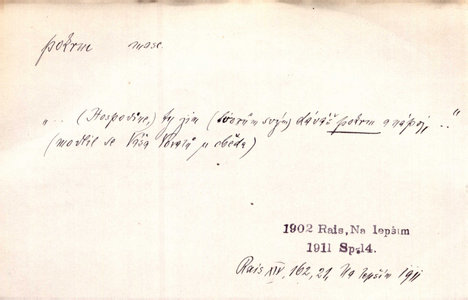 pokrm masc.
„.. (Hospodine,) ty jim (tvorům svým) dáváš pokrm a nápoj, .."
(modlil se Víša u oběda)
1902 Rais, Na lepším
1911 Sp.14.
Rais XIV, 162, 21, Na lepším 1911